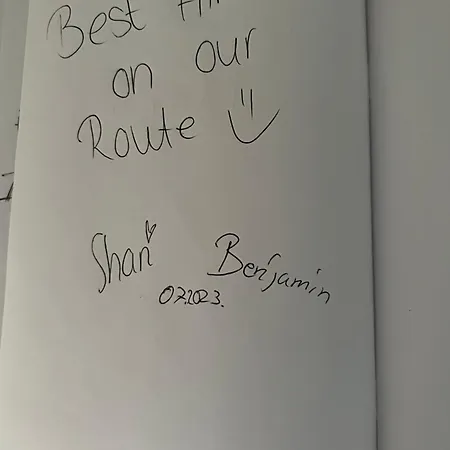 Best
on our
Route
Shari Benjamin
07.2023.